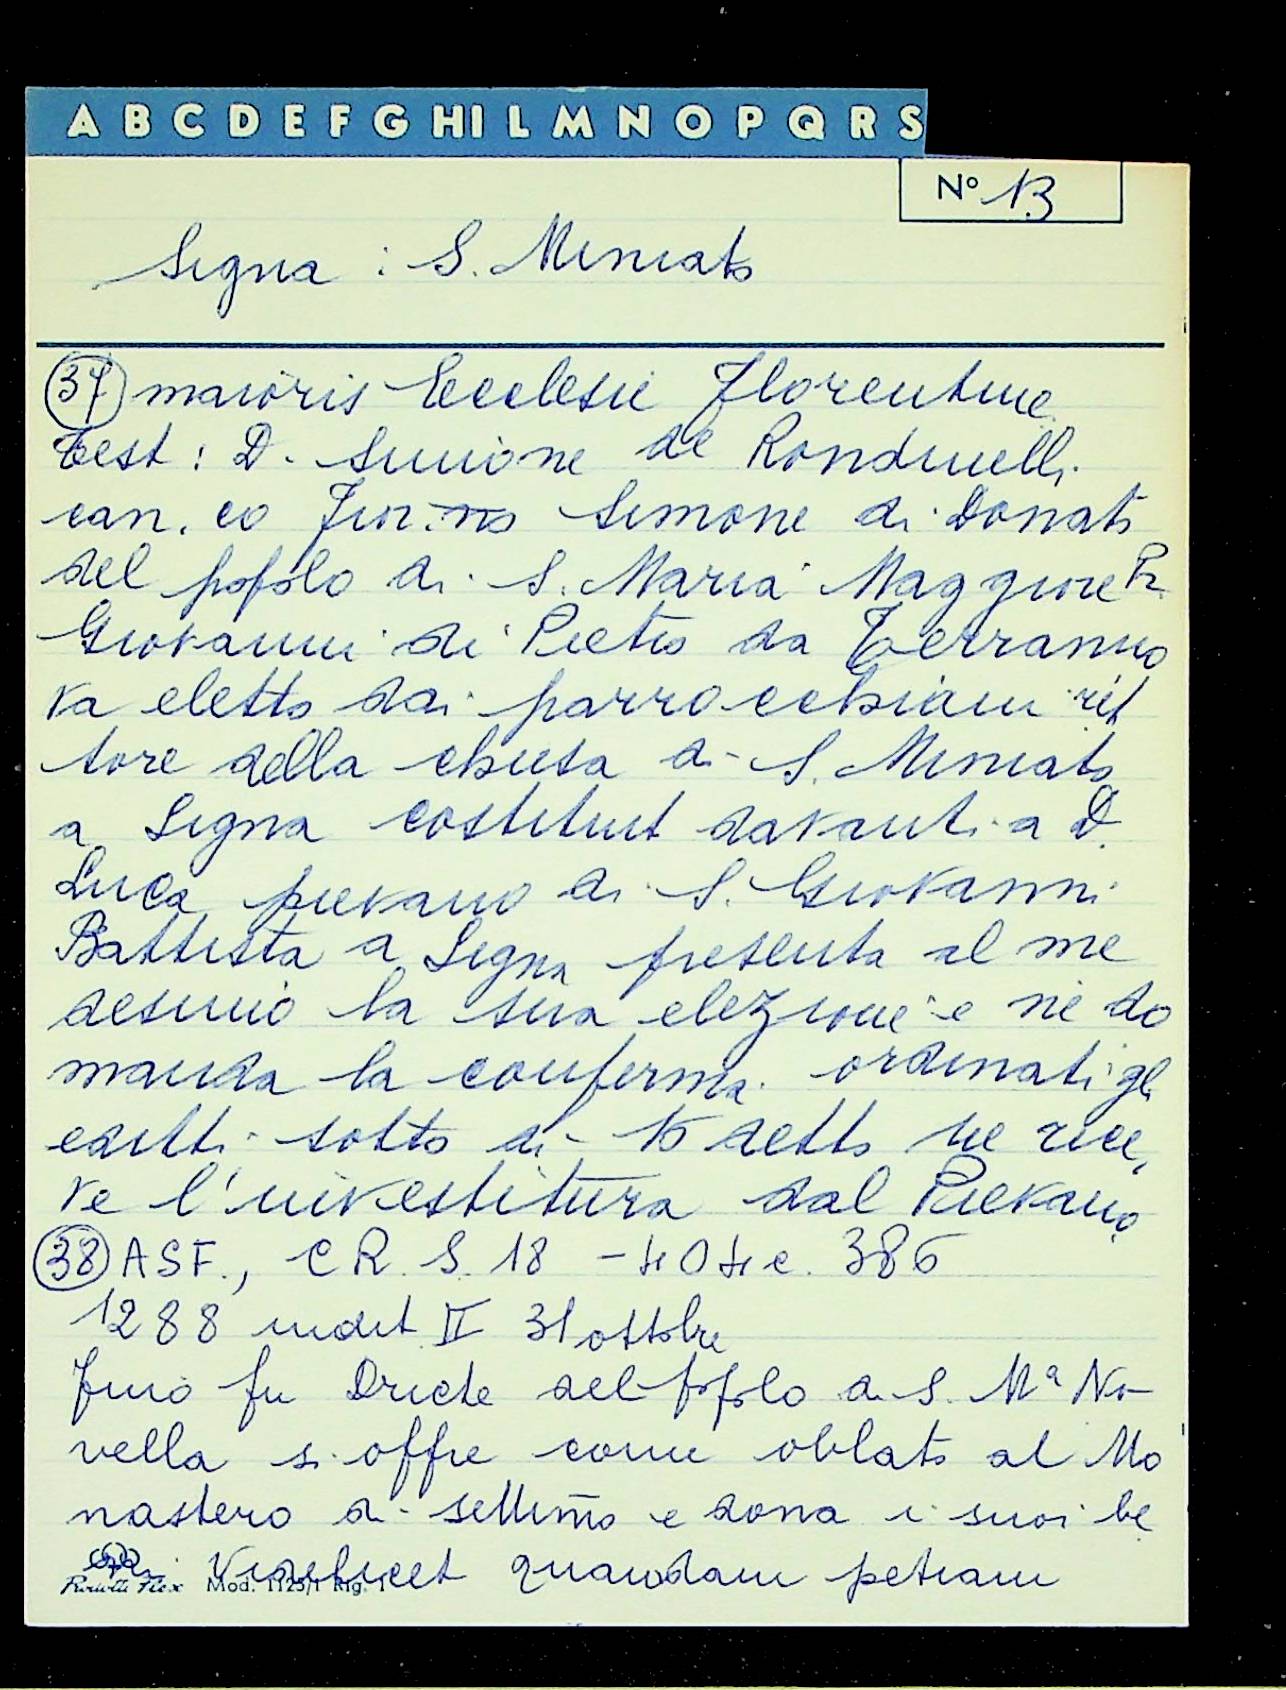 A B C D E F G HI L M N O P Q R S
Nº 13
Signa : S. Miniato
37 maioris Ecclesie Florentine
test : D. Simone de Rondinelli
can. co Fior.no Simone di Donato
del popolo di S. Maria Maggiore Pr.
Giovanni di Pietro da Terranuo
va eletto dai parrocchiani ret
tore della chiesa di S. Miniato
a Signa costituit davanti a D.
Luca pievano di S. Giovanni
Battista a Signa presenta al me
desimo la sua elezione e ne do
manda la conferma. ordinati gli
editti sotto di 15 detto ne rice,
ve l'investitura dal Pievano
38 ASF., C R. S. 18 - 404 c. 386
1288 indit II 31 ottobre
fu del popolo di S. Mª No-
vella si offre come oblato al Mo
nastero di Settimo e dona i suoi be
ni Videlicet quamdam petiam
Mod. 1125/1 Rig. 1